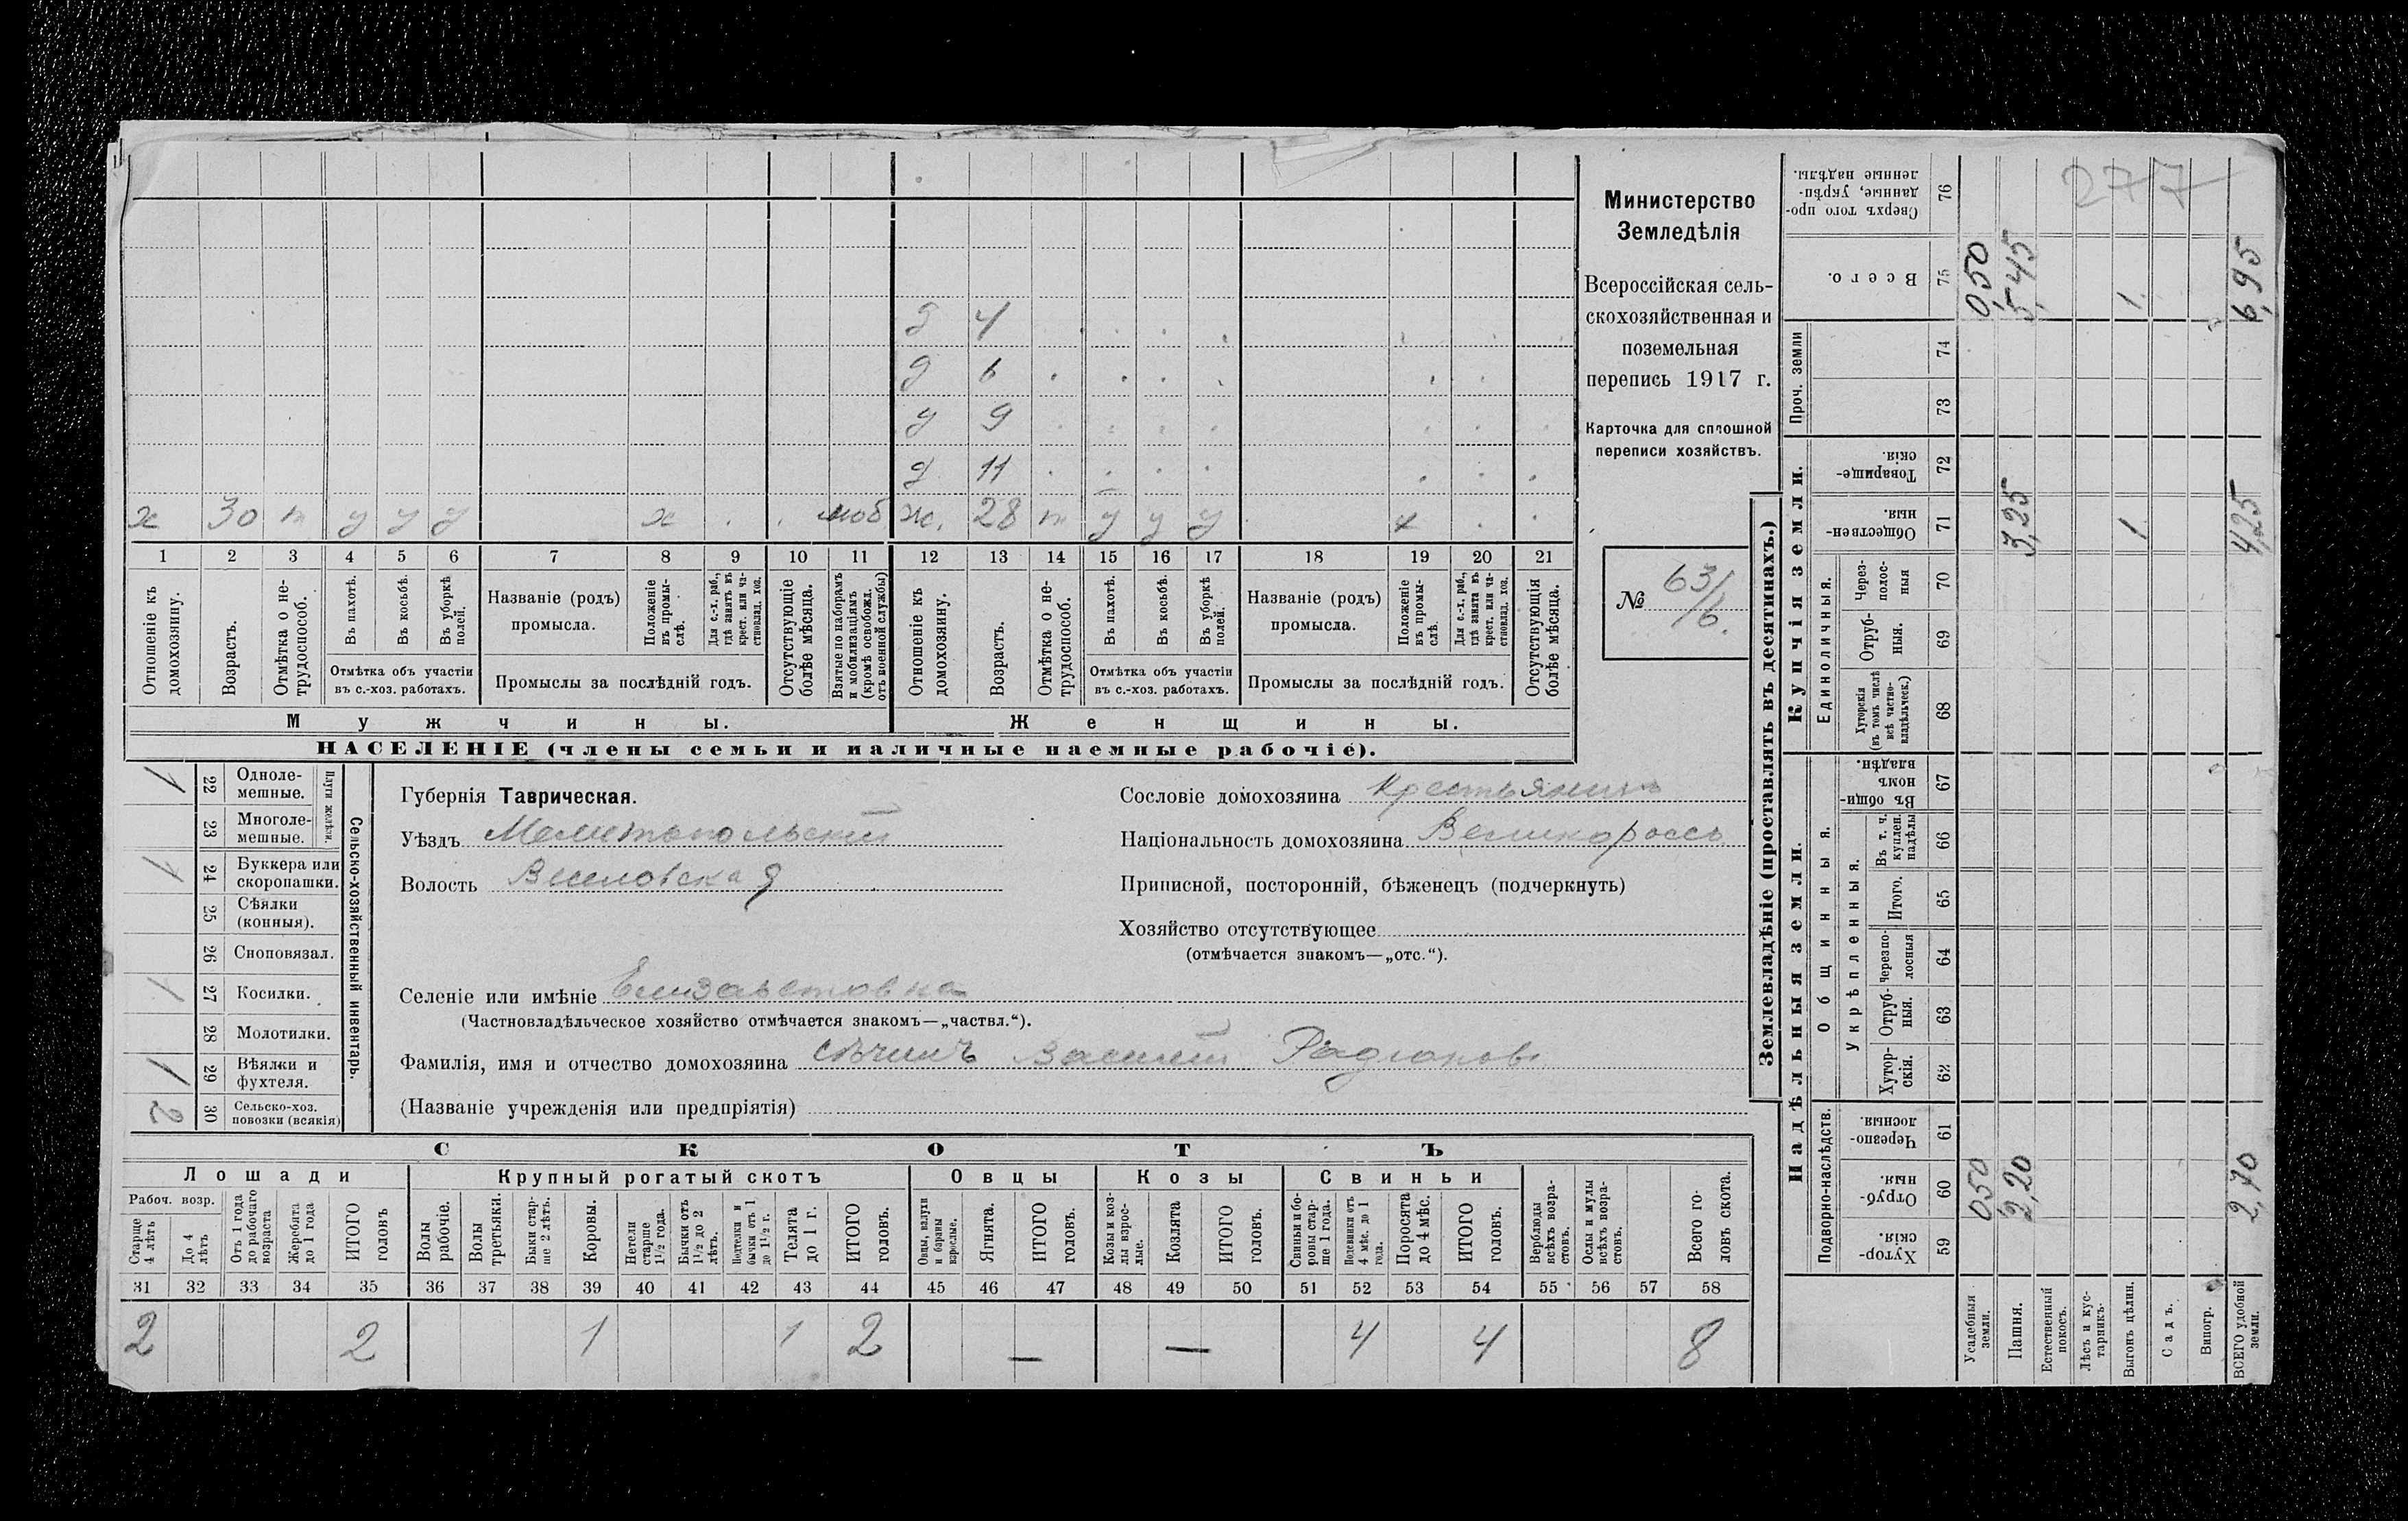 277
Министерство
Земледѣлія
Всероссійская сель-
скохозяйственная и
поземельная
перепись 1917 г.
Карточка для сплошной
переписи хозяйствъ.
№ 63/6.
д 4
д 6
д 9
д 11
х 30 т у у у х . . моб ж. 28 т у у у х . .
1 2 3 4 5 6 7 8 9 10 11 12 13 14 15 16 17 18 19 20 21
Отношеніе къ домохозяину.
Возрастъ.
Отмѣтка о не-трудоспособ.
Въ пахотѣ.
Въ косьбѣ.
Въ уборкѣ полей.
Отмѣтка объ участіи
въ с.-хоз. работахъ.
Названіе (родъ)
промысла.
Положеніе въ промы-слѣ.
Для с.-х. раб., гдѣ занятъ въ крест. или ча-стновлад. хоз.
Промыслы за послѣдній годъ.
Отсутствующіе болѣе мѣсяца.
Взятые по наборамъ и мобилизаціямъ (кромѣ освобожд. отъ военной службы)
Отношеніе къ домохозяину.
Возрастъ.
Отмѣтка о не-трудоспособ.
Въ пахотѣ.
Въ косьбѣ.
Въ уборкѣ полей.
Отмѣтка объ участіи
въ с.-хоз. работахъ.
Названіе (родъ)
промысла.
Положеніе въ промы-слѣ.
Для с.-х. раб., гдѣ занята въ крест. или ча-стновлад. хоз.
Промыслы за послѣдній годъ.
Отсутствующія болѣе мѣсяца.
Мужчины.
Женщины.
НАСЕЛЕНІЕ (члены семьи и наличные наемные рабочіе).
Сельско-хозяйственный инвентарь.
Плуги желѣзн.
1 22 Одноле-мешные.
23 Многоле-мешные.
1 24 Буккера или скоропашки.
25 Сѣялки (конныя).
26 Сноповязал.
1 27 Косилки.
28 Молотилки.
1 29 Вѣялки и фухтеля.
2 30 Сельско-хоз. повозки (всякія)
Губернія Таврическая.
Уѣздъ Мелитопольскій
Волость Веселовская
Сословіе домохозяина Крестьянинъ
Національность домохозяина Великороссъ
Приписной, посторонній, бѣженецъ (подчеркнуть)
Хозяйство отсутствующее
(отмѣчается знакомъ—„отс.“).
Селеніе или имѣніе Елизаветовка
(Частновладѣльческое хозяйство отмѣчается знакомъ—„частвл.“).
Фамилія, имя и отчество домохозяина Сѣчинъ Василій Радіоновъ
(Названіе учрежденія или предпріятія)
СКОТЪ
Лошади
Крупный рогатый скотъ
Овцы
Козы
Свиньи
Рабоч. возр.
Старше 4 лѣтъ
До 4 лѣтъ
Отъ 1 года до рабочаго возраста
Жеребята до 1 года
ИТОГО головъ
Волы рабочіе.
Волы третьяки.
Быки стар-ше 2 лѣтъ.
Коровы.
Нетели старше 1½ года.
Бычки отъ 1½ до 2 лѣтъ.
Подтелки и бычки отъ 1 до 1½ г.
Телята до 1 г.
ИТОГО головъ.
Овцы, валухи и бараны взрослые.
Ягнята.
ИТОГО головъ.
Козы и коз-лы взрос-лые.
Козлята
ИТОГО головъ.
Свиньи и бо-ровы стар-ше 1 года.
Подсвинки отъ 4 мѣс. до 1 года.
Поросята до 4 мѣс.
ИТОГО головъ.
Верблюды всѣхъ возра-стовъ.
Ослы и мулы всѣхъ возра-стовъ.
Всего го-ловъ скота.
31 32 33 34 35 36 37 38 39 40 41 42 43 44 45 46 47 48 49 50 51 52 53 54 55 56 57 58
2 2 1 1 2 — — 4 4 8
Землевладѣніе (проставлять въ десятинахъ.)
Надѣльныя земли.
Купчія земли.
Проч. земли
Подворно-наслѣдств.
Общинныя.
Укрѣпленныя.
Единоличныя.
Сверхъ того про-данные, укрѣп-ленные надѣлы. 76
Всего. 75 0,50 5,45 1. 6,95
74
73
Товарище-скія. 72
Обществен-ныя. 71 3,25 1 4,25
Через-полос-ныя 70
Отруб-ныя. 69
Хуторскія (въ томъ числѣ всѣ частно-владѣльческ.) 68
Въ общи-номъ владѣн. 67
Въ т. ч. куплен. надѣлы 66
Итого. 65
Черезпо-лосныя 64
Отруб-ныя. 63
Хутор-скія. 62
Черезпо-лосныя. 61
Отруб-ныя. 60 0,50 2,20 2,70
Хутор-скія. 59
Усадебныя земли.
Пашня.
Естественный покосъ.
Лѣсъ и кус-тарникъ.
Выгонъ цѣлин.
Садъ.
Виногр.
ВСЕГО удобной земли.